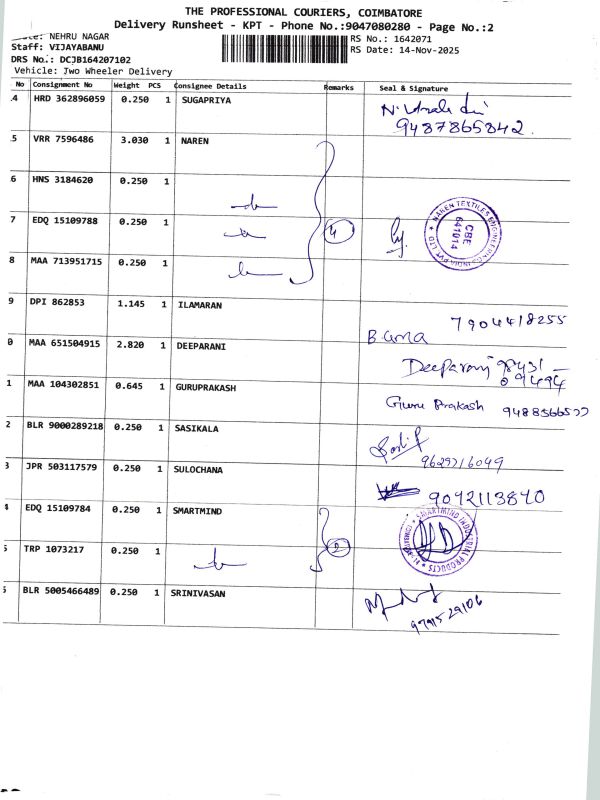 THE PROFESSIONAL COURIERS, COIMBATORE
Delivery Runsheet - KPT - Phone No.:9047080280 - Page No.:2
NEHRU NAGAR
RS No.: 1642071
Staff: VIJAYABANU
RS Date: 14-Nov-2025
DRS No.: DCJB164207102
Vehicle: Two Wheeler Delivery
No Consignment No Weight PCS Consignee Details Remarks Seal & Signature
4 HRD 362896059 0.250 1 SUGAPRIYA
9487865842
5 VRR 7596486 3.030 1 NAREN
6 HNS 3184620 0.250 1
7 EDQ 15109788 0.250 1 4
NAREN TEXTILES ENGINEERING INDIA PVT LTD
CBE
641014
8 MAA 713951715 0.250 1
9 DPI 862853 1.145 1 ILAMARAN
7904418255
B. Uma
0 MAA 651504915 2.820 1 DEEPARANI
Deeparani 98431
09494
1 MAA 104302851 0.645 1 GURUPRAKASH
Guru Prakash 9488566577
2 BLR 9000289218 0.250 1 SASIKALA
9629716049
3 JPR 503117579 0.250 1 SULOCHANA
9042113840
4 EDQ 15109784 0.250 1 SMARTMIND
SMARTMIND INDUSTRIAL PRODUCTS
5 TRP 1073217 0.250 1 2
5 BLR 5005466489 0.250 1 SRINIVASAN
9791529106